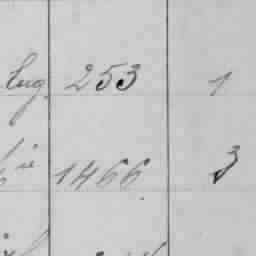 Eug. 253 1
1466 3